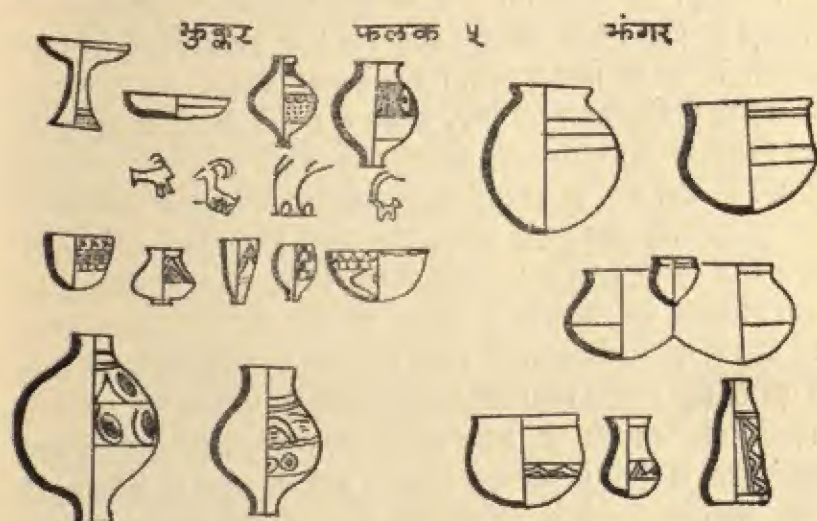 झुकूर फलक ५ झंगर